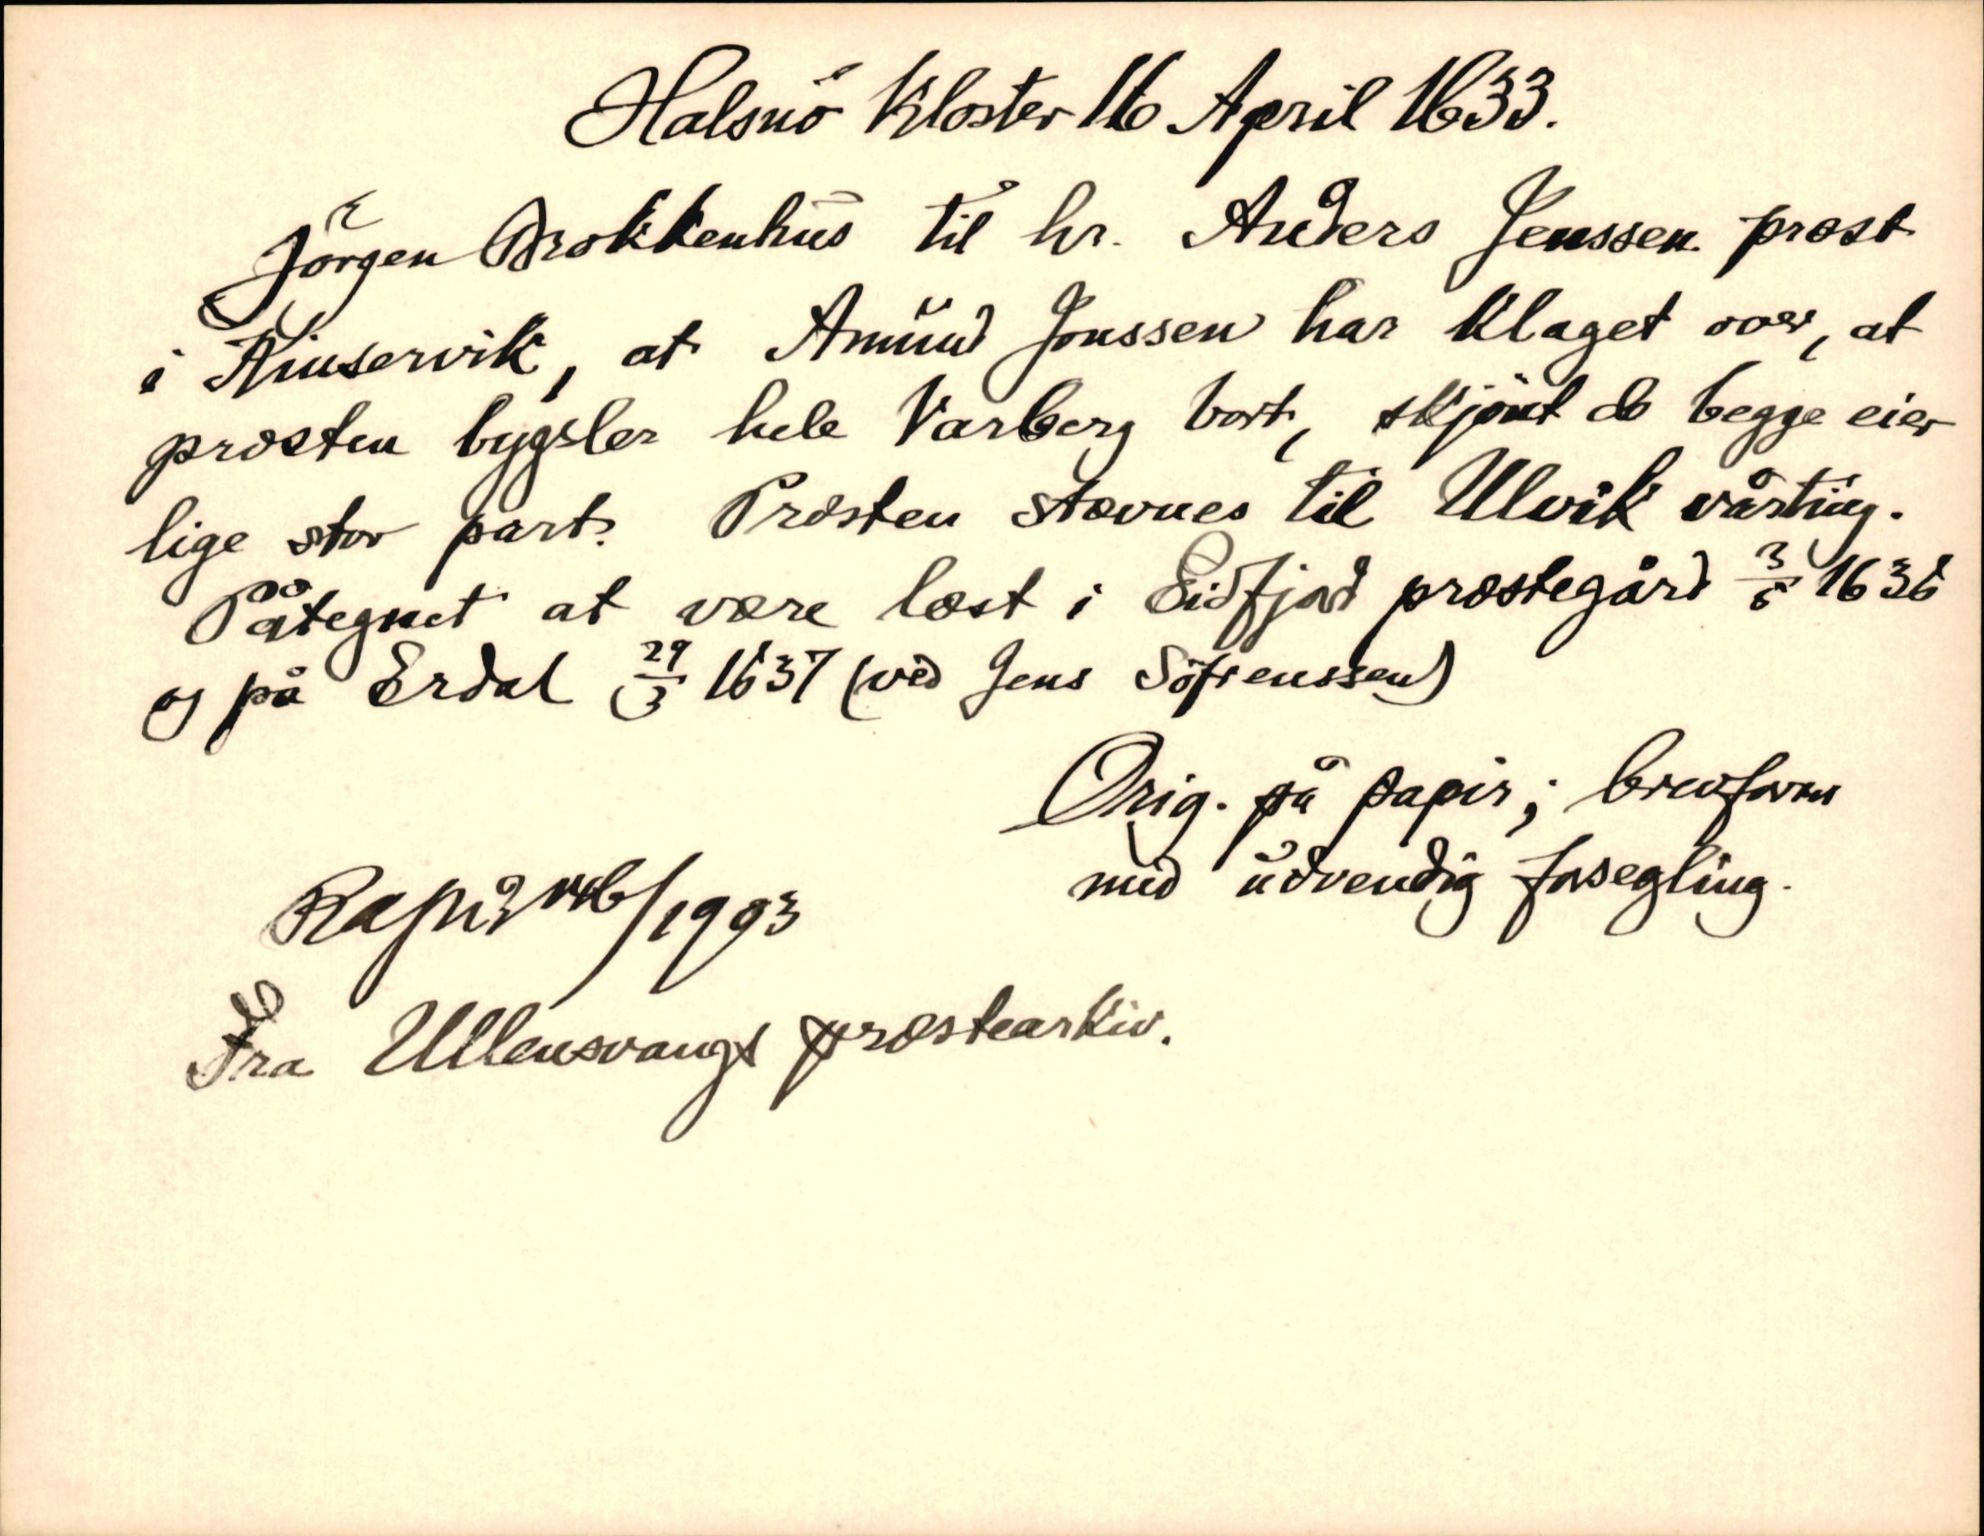 Halsnö Kloster 16 April 1633.
Jörgen Brokkenhus til hr. Anders Jenssen prost
i Kinservik, at Amund Jonssen har klaget over, at
prosten bygsler hele Varberg bort, skjönt de begge eier
lige stor part. Prosten stævnes til Ulvik vårting.
Påtegnet at være læst i Eidfjord præstegård 3/5 1636
og på Erdal 29/3 1637 (ved Jens Söfrenssen)
Orig. på papir; brevform
med udvendig forsegling.
/1903
Fra Ullensvangs præstearkiv.